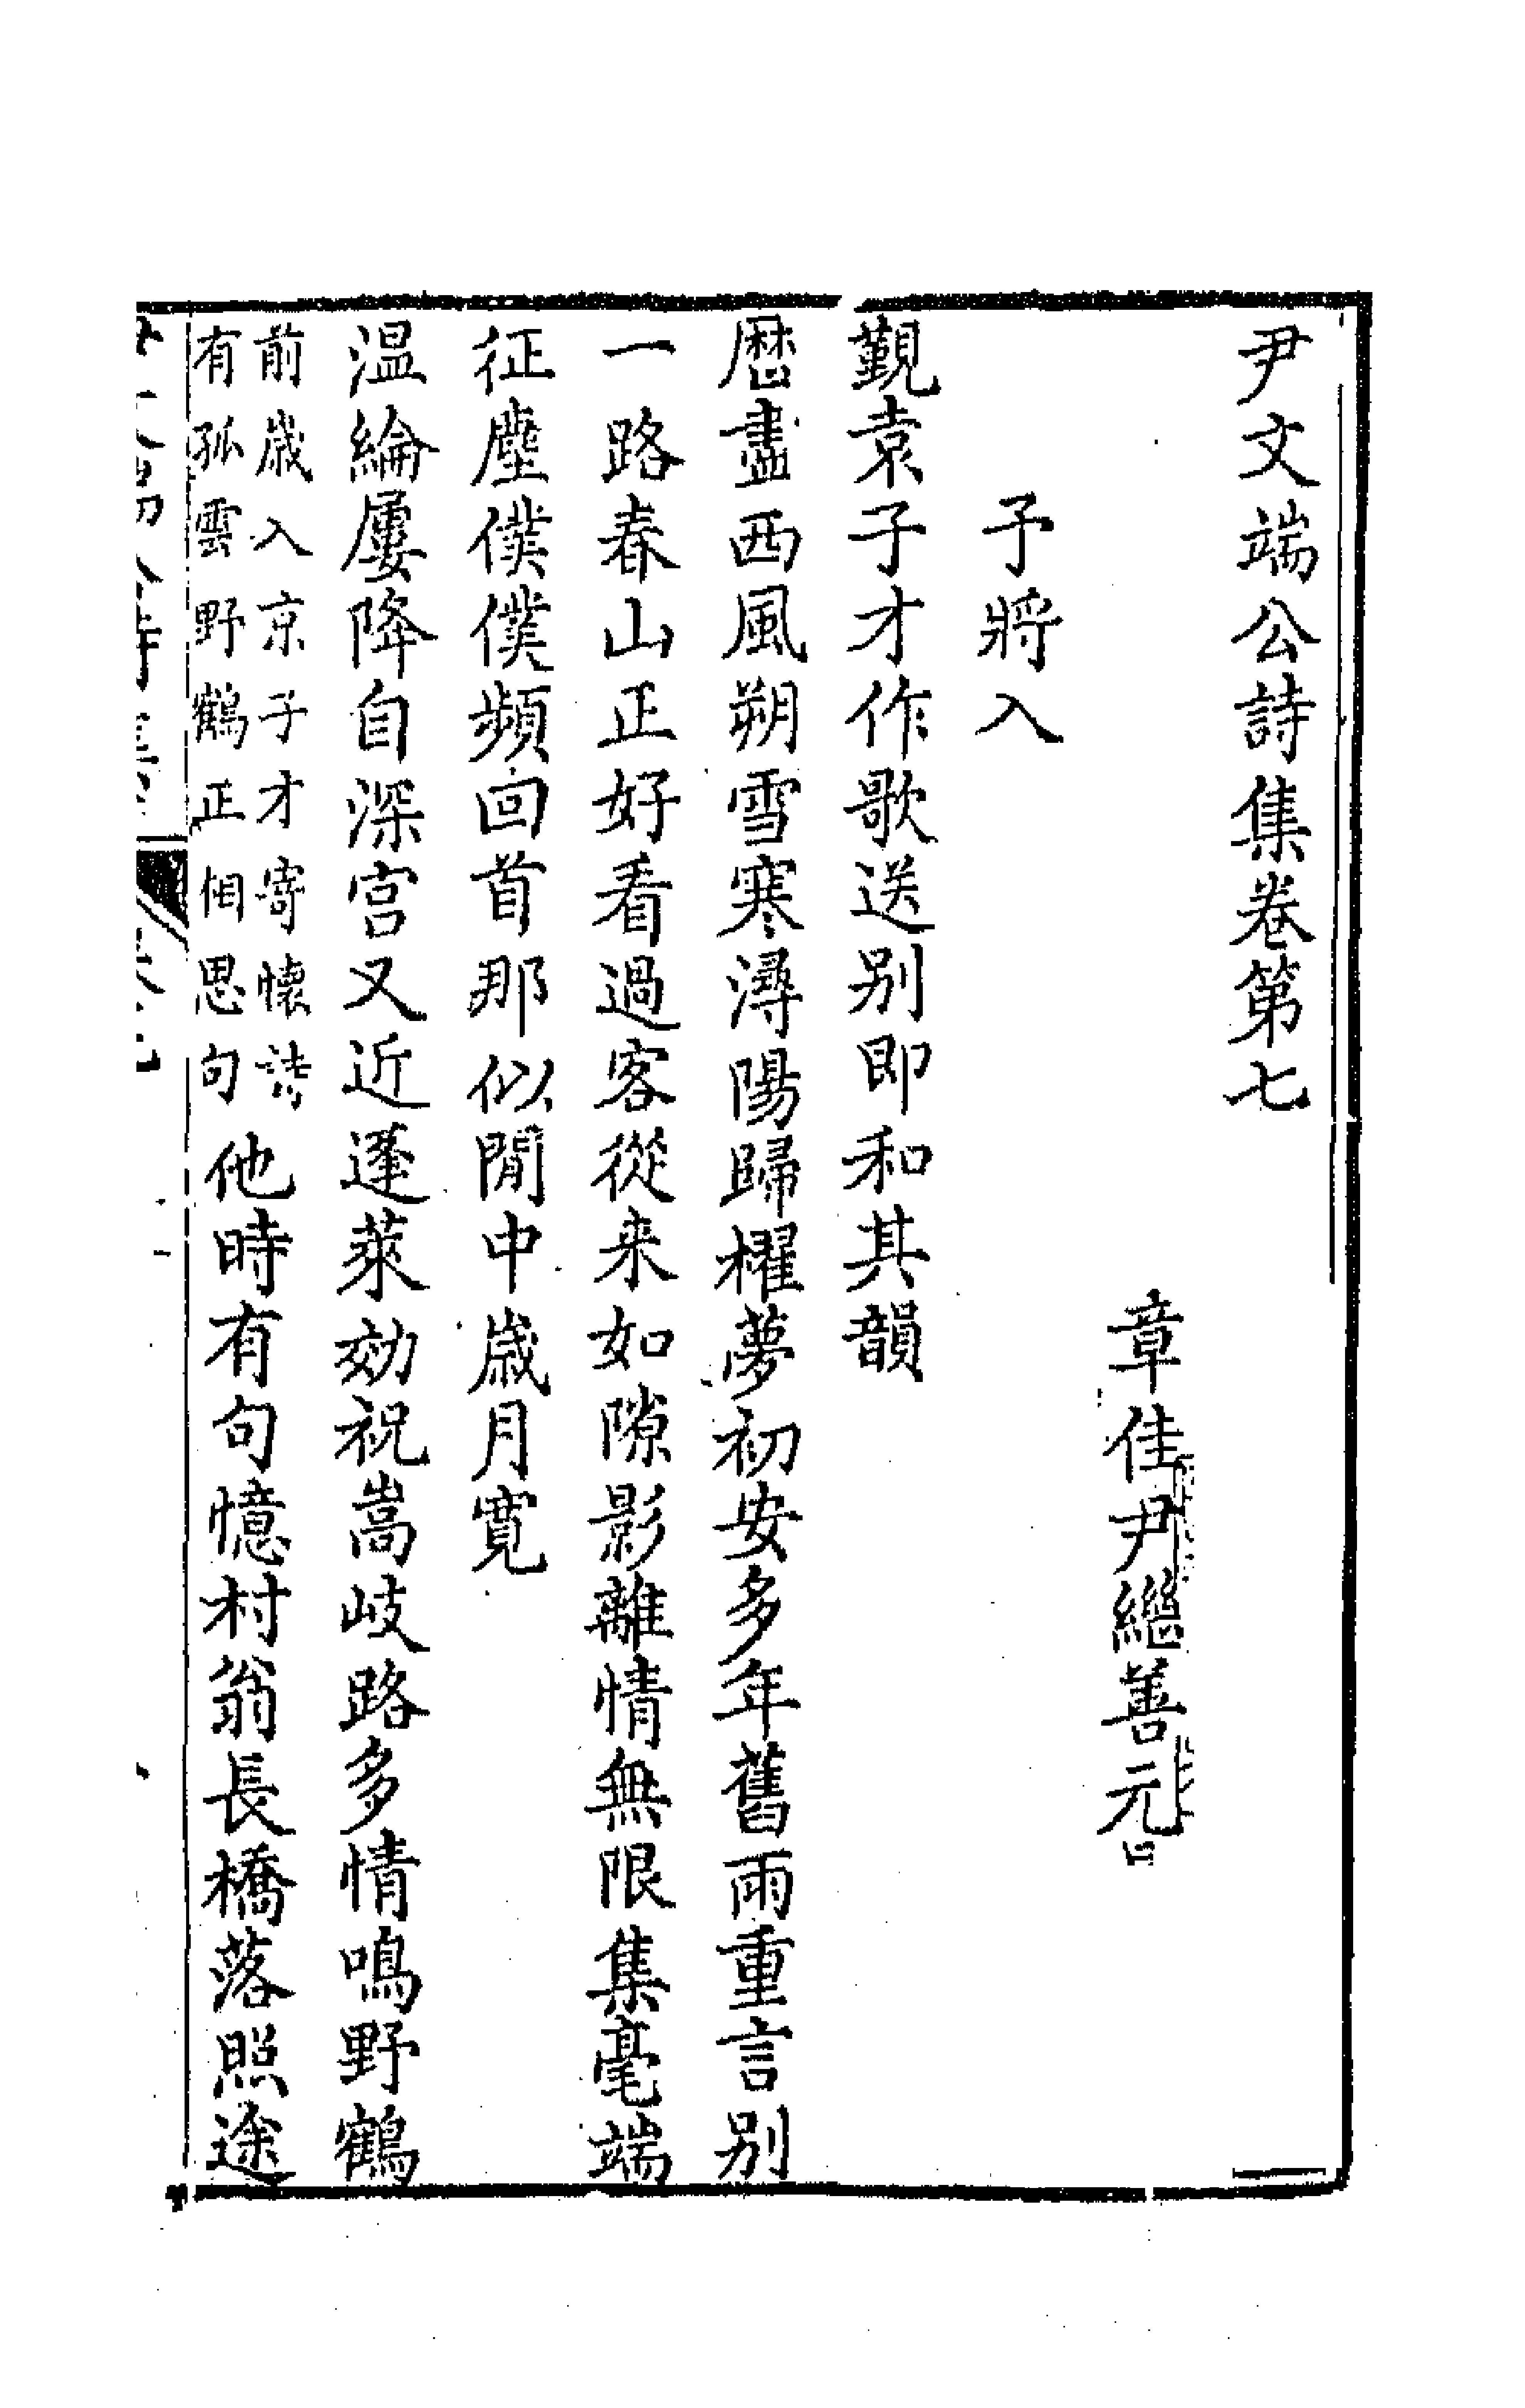 尹文端公詩集卷第七
章佳尹繼善元
予將入
覲袁子才作歌送别即和其韻
歴盡西風朔雪寒潯陽歸櫂夢初安多年舊雨重言别
一路春山正好看過客從来如隙影離情無限集毫端
征塵僕僕頻回首那似閒中歲月寛
温綸屢降自深宫又近蓬萊効祝嵩岐路多情鳴野鶴
前歲入京子才寄懷詩
有孤雲野鶴正相思句
他時有句憶村翁長橋落照途